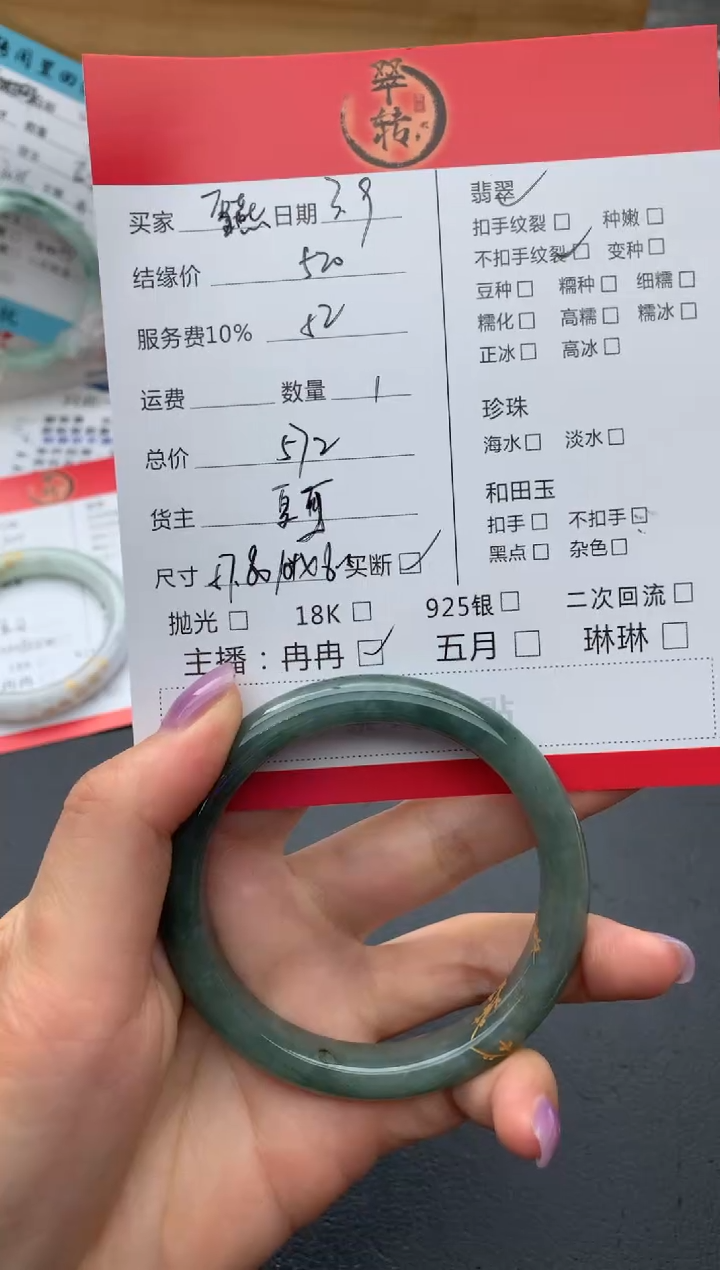 翠转
买家 燕 日期 3.9
结缘价 520
服务费10% 52
运费 数量 1
总价 572
货主 夏夏
尺寸 买断
翡翠
扣手纹裂 种嫩
不扣手纹裂 变种
豆种 糯种 细糯
糯化 高糯 糯冰
正冰 高冰
珍珠
海水 淡水
和田玉
扣手 不扣手
黑点 杂色
抛光 18K 925银 二次回流
主播：冉冉 五月 琳琳